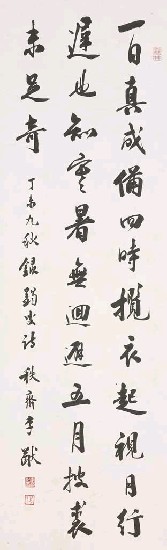 一日真成備四時攬衣起視日行
遲也知寒暑無迴避五月披裘
未足奇
丁未九秋錄鷗叟詩 秩齋李猷